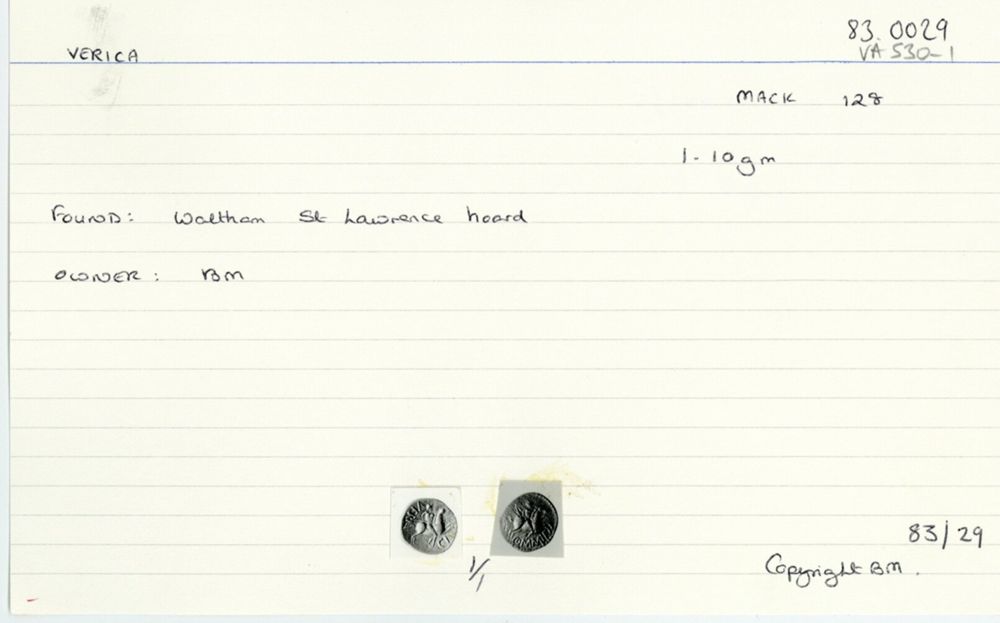 83.0029
VERICA
VA 530-1
MACK 128
1.10gm
FOUND: Waltham St Lawrence hoard
OWNER: BM
1/1
83/29
Copyright BM.